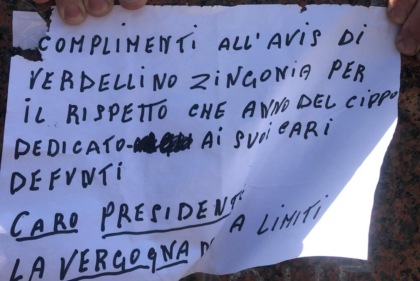 COMPLIMENTI ALL'AVIS DI
VERDELLINO ZINGONIA PER
IL RISPETTO CHE ANNO DEL CIPPO
DEDICATO AI SUOI CARI
DEFUNTI
CARO PRESIDENT
LA VERGOGNA A LIMITI